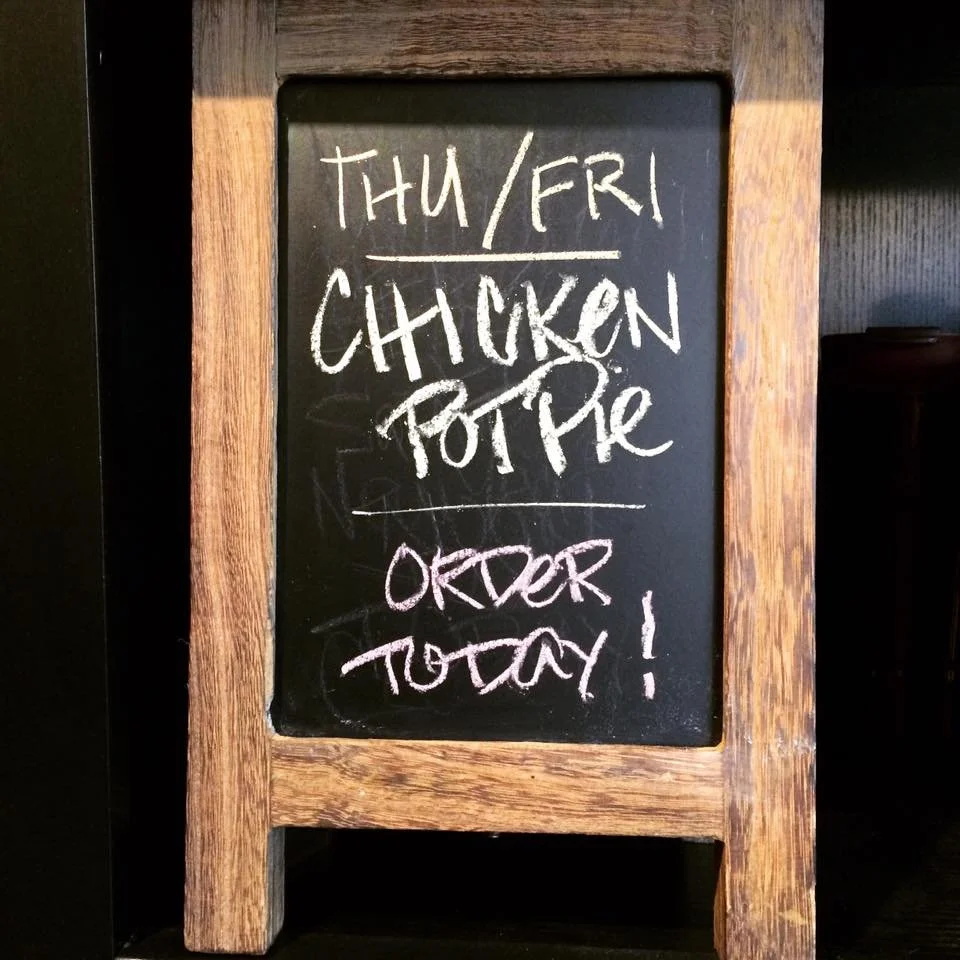 THU/FRI
CHICKEN
POT PIE
ORDER
TODAY!